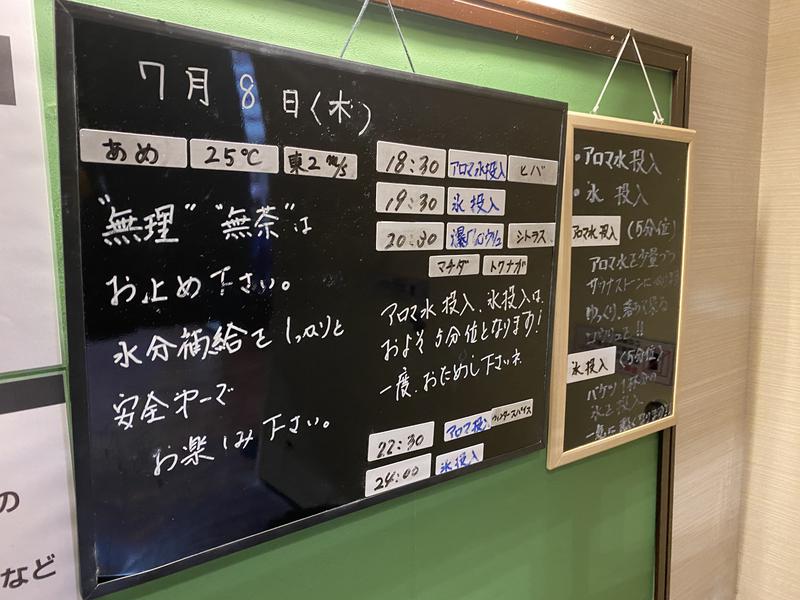 7月8日(木)
あめ 25℃ 東2m/s
"無理" "無茶"は
お止め下さい。
水分補給をしっかりと
安全第一で
お楽しみ下さい。
18:30 アロマ水投入 ヒバ
19:30 氷投入
20:30 シトラス
マチダ トクナガ
アロマ水投入、氷投入は、
およそ5分位となります!
一度、おためし下さいネ
22:30 アロマ投入 ウィンタースパイス
24:00 氷投入
・アロマ水投入
・氷投入
アロマ水投入 (5分位)
アロマ水を少量づつ
サウナストーンに
ゆっくり、
氷投入 (5分位)
バケツ1杯分の
氷を投入
の
など